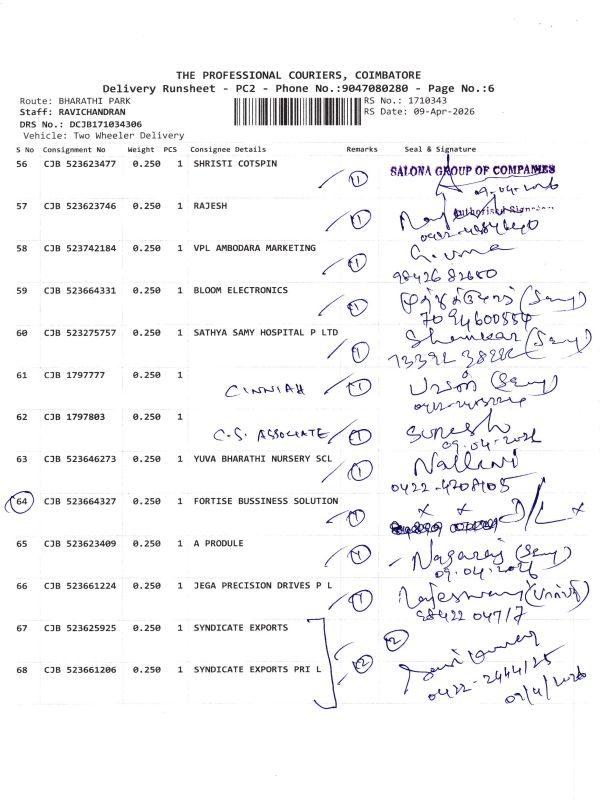 THE PROFESSIONAL COURIERS, COIMBATORE
Delivery Runsheet - PC2 - Phone No.:9047080280 - Page No.:6
Route: BHARATHI PARK RS No.: 1710343
Staff: RAVICHANDRAN RS Date: 09-Apr-2026
DRS No.: DCJB171034306
Vehicle: Two Wheeler Delivery
S No Consignment No Weight PCS Consignee Details Remarks Seal & Signature
56 CJB 523623477 0.250 1 SHRISTI COTSPIN 1 SALONA GROUP OF COMPANIES
09.04.2026
57 CJB 523623746 0.250 1 RAJESH 1
58 CJB 523742184 0.250 1 VPL AMBODARA MARKETING 1
98426 82680
59 CJB 523664331 0.250 1 BLOOM ELECTRONICS 1
7094600554
60 CJB 523275757 0.250 1 SATHYA SAMY HOSPITAL P LTD 1 Shankar
61 CJB 1797777 1 CINNIAH 1
62 CJB 1797803 0.250 1 C.S. ASSOCIATE 1 Suresh
09.04.2026
63 CJB 523646273 0.250 1 YUVA BHARATHI NURSERY SCL 1
0422-4208405
64 CJB 523664327 0.250 1 FORTISE BUSSINESS SOLUTION 1 x x D/L x
65 CJB 523623409 0.250 1 A PRODULE 1 Nagaraj
09.04.2026
66 CJB 523661224 0.250 1 JEGA PRECISION DRIVES P L 1
98422 04717
67 CJB 523625925 0.250 1 SYNDICATE EXPORTS 2
68 CJB 523661206 0.250 1 SYNDICATE EXPORTS PRI L 2
0422-2444125
09/4/2026